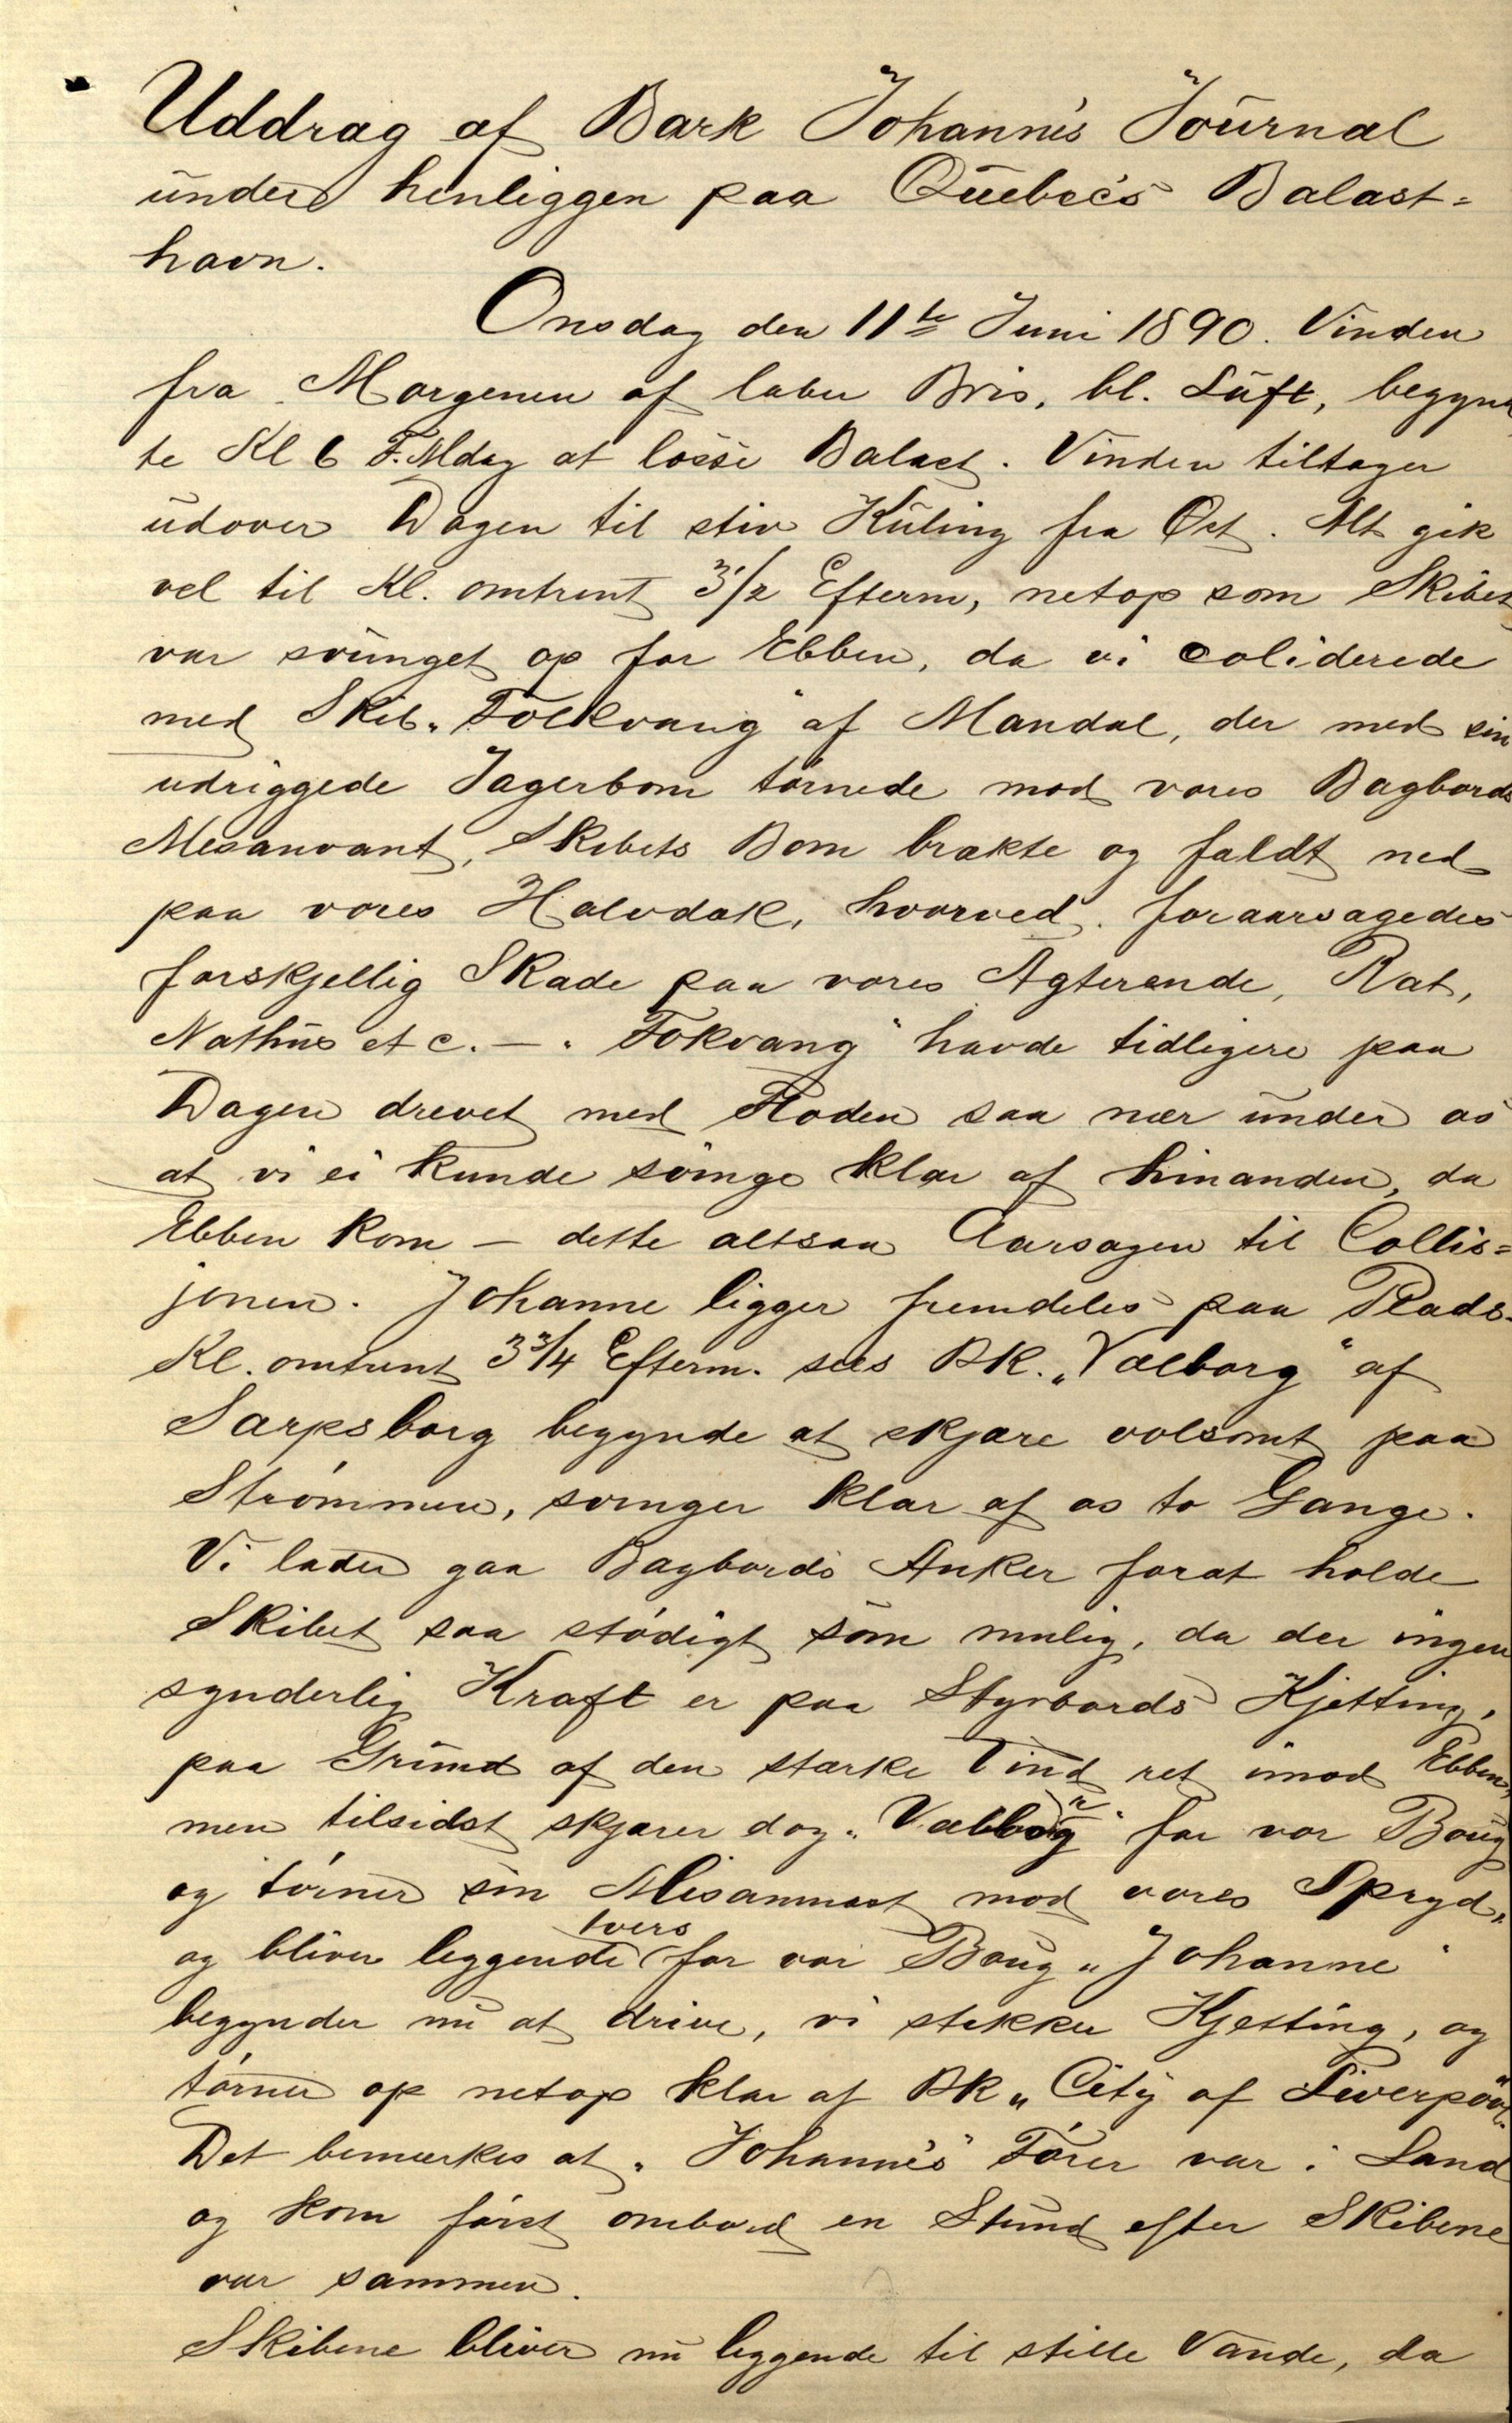 Uddrag af Bark Johanne's Journal
under henliggen paa Quebec's Balast=
havn.
Onsdag den 11te Juni 1890. Vinden
fra Morgenen af laber Bris, bl. Luft, begynd
te Kl 6 F.Mdag at losse Balast. Vinden tiltager
udover Dagen til stiv Kuling fra Øst. Alt gik
vel til Kl. omtrent 3 1/2 Efterm, netop som Skibet
var svunget op for Ebben, da vi coliderede
med Skib "Folkvang" af Mandal, der med sin
udriggede Jagerbom tørnede mod vores Bagbords
Mesanvant, Skibets Bom brakte og faldt ned
paa vores Halvdæk, hvorved foraarsagedes
forskjellig Skade paa vores Agterende, Rat,
Nathus etc. — "Fokvang" havde tidligere paa
Dagen drevet med Floden saa nær under os
at vi ei kunde svinge klar af hinanden, da
Ebben kom — dette altsaa Aarsagen til Collis=
jonen. Johanne ligger fremdeles paa Plads.
Kl. omtrent 3 3/4 Efterm. sees Bk. "Valborg" af
Sarpsborg begynde at skjære volsomt paa
Strømmen, svinger klar af os to Gange.
Vi lader gaa Bagbords Anker forat holde
Skibet saa stødigt som mulig, da der ingen
synderlig Kraft er paa Styrbords Kjetting,
paa Grund af den stærke Vind ret imod Ebben,
men tilsidst skjærer dog "Valborg" for vor Boug
og tørner sin Mesanmast mod vores Spryd,
og bliver leggende tvers for vor Boug "Johanne"
begynder nu at drive, vi stikker Kjetting, og
tørner op netop klar af Bk "City of Liverpool".
Det bemærkes at "Johanne's" Fører var i Land
og kom først ombord en Stund efter Skibene
var sammen.
Skibene bliver nu leggende til stille Vande, da